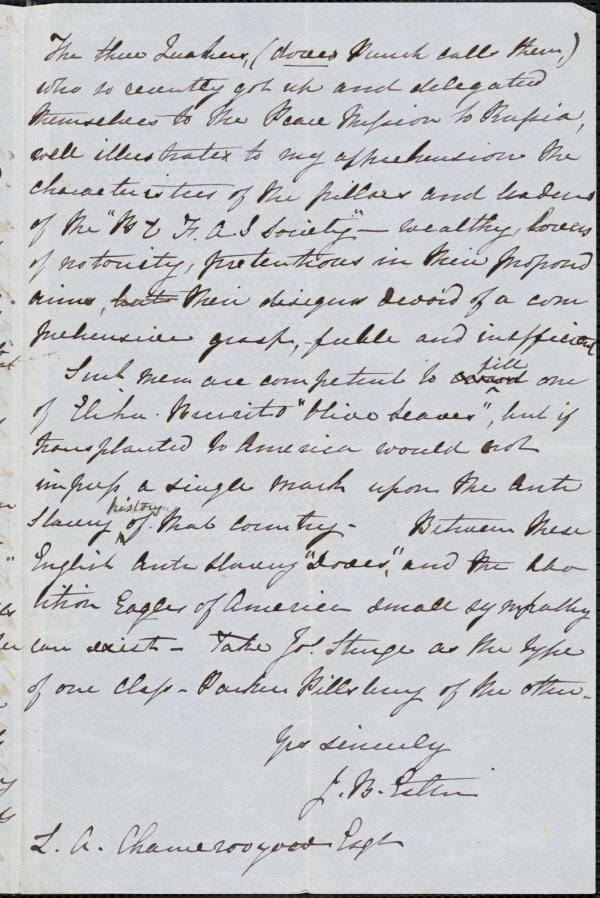 The three Quakers, (doves Punch calls them,)
who so recently got up and delegated
themselves to the Peace Mission to Russia,
well illustrates to my apprehension the
characteristics of the pillars and leaders
of the "B & F. A. S Society" — wealthy, lovers
of notority, pretentious in their proposed
aims, but their disigns devoid of a com
prehensive grasp, feeble and inefficient
Such men are competent to fill one
of Elihu Burrits "Olive Leaves", but if
transplanted to America would not
impress a single mark upon the Anti
Slavery history of that country — Between these
English Anti Slavery "Doves", and the Abo
lition Eagles of America small sympathy
can exist — Take Jos. Sturge as the type
of one class — Parker Pillsbury of the other.
Yrs sincerely
J. B. Estlin
L. A. Chamerovzow Esqr